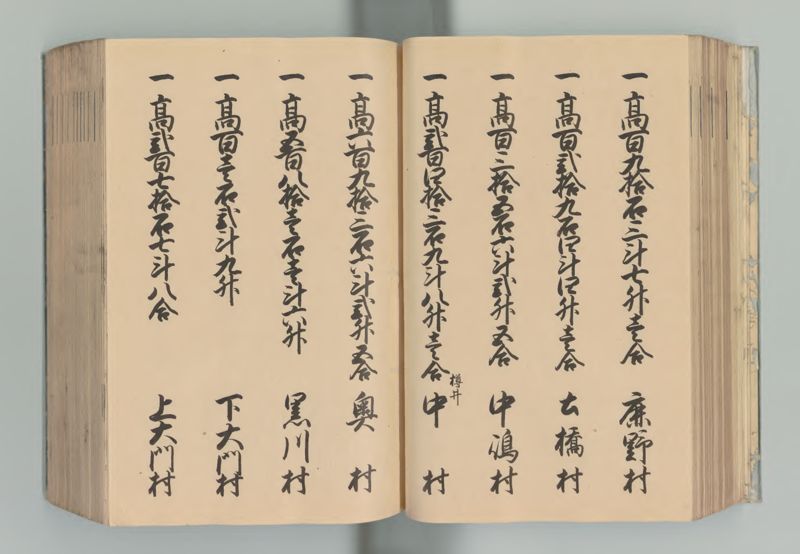 一 高百九拾石三斗七升壱合 鹿野村
一 高百弐拾九石四斗四升壱合 土橋村
一 高百三拾五石六斗弐升五合 中嶋村
一 高弐百四拾三石九斗八升壱合 樽井 中村
一 高六百九拾三石六斗弐升五合 奥村
一 高五百八拾壱石壱斗六升 黒川村
一 高百壱石弐斗九升 下大門村
一 高弐百七拾石七斗八合 上大門村